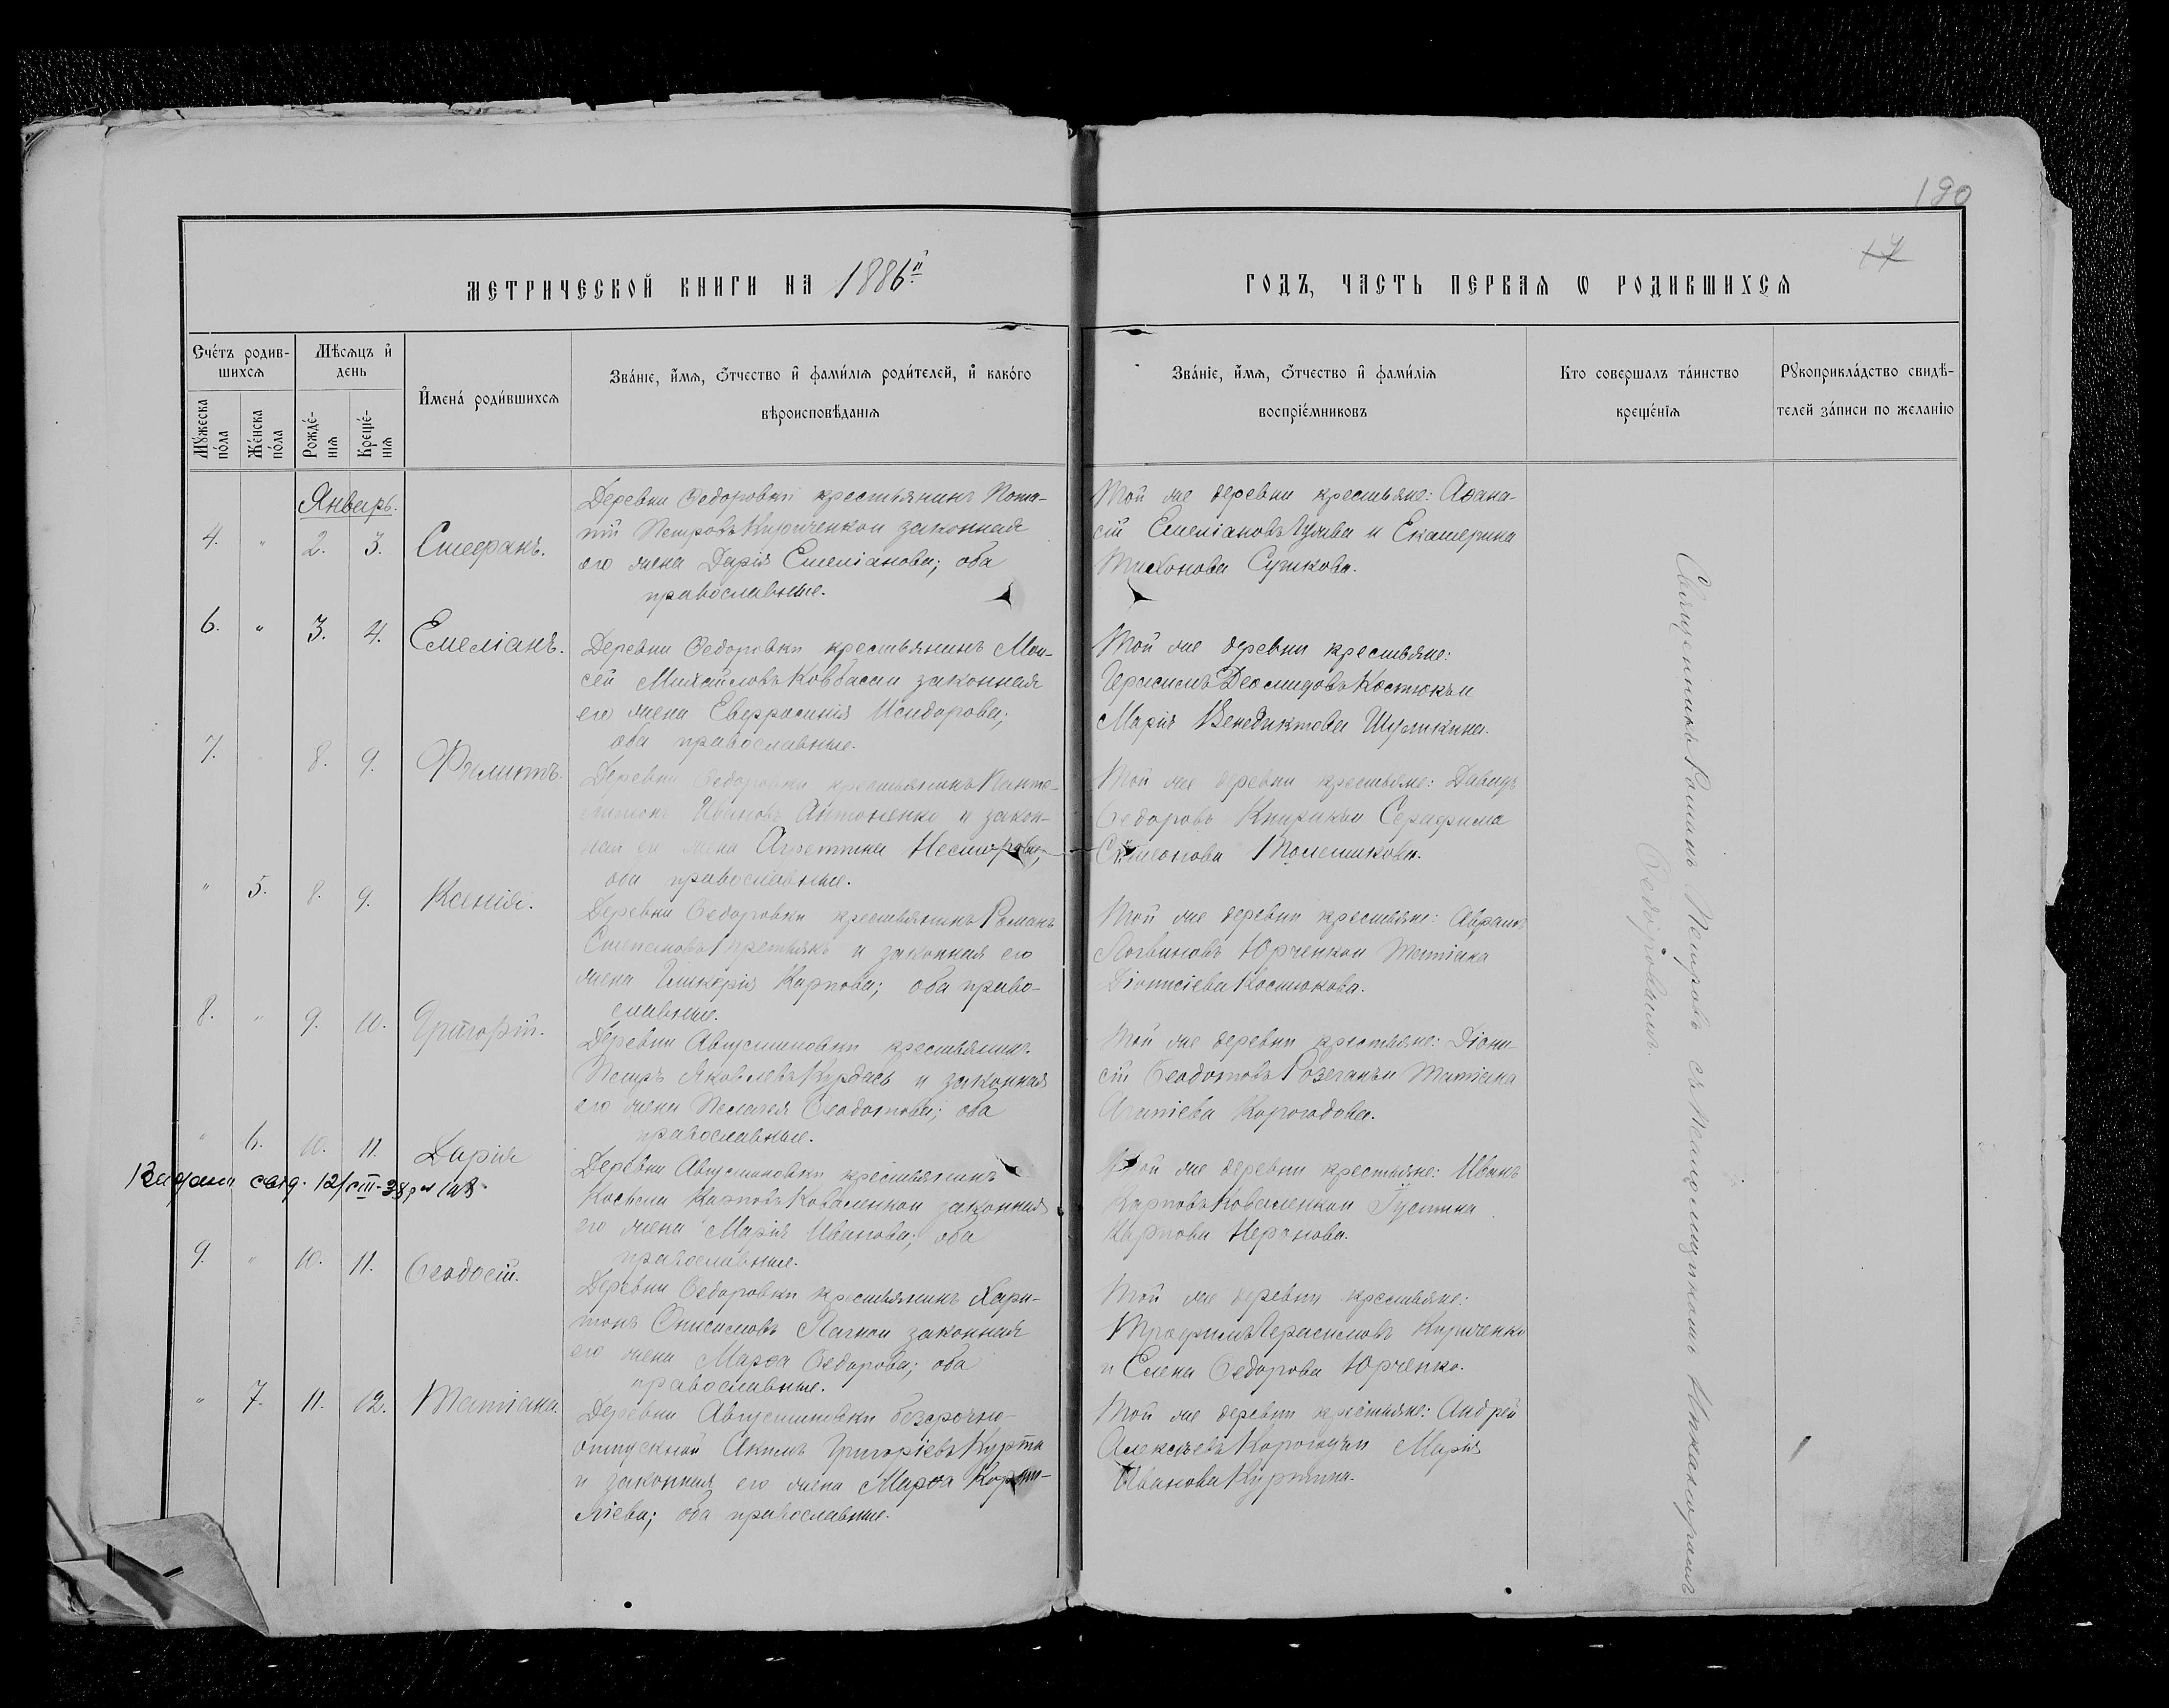 190
17
МЕТРИЧЕСКОЙ КНИГИ НА 1886й
ГОДЪ, ЧАСТЬ ПЕРВАЯ Ѡ РОДИВШИХСЯ
Сче́тъ родив-
шихсѧ
Мѣсѧцъ и҆
день
Мꙋ́жеска
по́ла
Же́нска
по́ла
Рожде́-
нїѧ
Креще́-
нїѧ
И҆мена́ роди́вшихсѧ
Зва́нїе, и҆́мѧ, ѻ҆́тчество и҆ фами́лїѧ роди́телей, и҆ како́го
вѣроисповѣ́данїѧ
Зва́нїе, и҆́мѧ, ѻ҆́тчество и҆ фами́лїѧ
воспрїе́мниковъ
Кто совершалъ та́инство
креще́нїѧ
Рꙋкоприкла́дство свидѣ́-
телей за́писи по желанїю
Январь.
4. " 2. 3. Стефанъ.
Деревни Ѳедоровки крестьянинъ Пота-
пій Петровъ Кириченко и законная
его жена Дарія Емеліанова; оба
православные.
Той же деревни крестьяне: Аѳана-
сій Емеліановъ и Екатерина
Тихонова Сушкова.
6. " 3. 4. Емеліанъ.
Деревни Ѳедоровки крестьянинъ Мои-
сей Михайловъ Ковбаса и законная
его жена Евфросинія Исидорова;
оба православные.
Той же деревни крестьяне:
Герасимъ Деомидовъ Костюкъ и
Марія Венедиктова Шуликина.
7. 8. 9. Филиппъ.
Деревни Ѳедоровки крестьянинъ Панте-
лимонъ Ивановъ Антоненко и закон-
ная его жена Агриппина Несторова;
оба православные.
Той же деревни крестьяне: Давидъ
Ѳедоровъ и Серафима
Симеонова
" 5. 8. 9. Ксенія.
Деревни Ѳедоровки крестьянинъ Романъ
Степановъ Третьякъ и законная его
жена Гликерія Карпова; оба право-
славные.
Той же деревни крестьяне: Аврамъ
Логвиновъ Юрченко и Татіана
Діонисіева Костюкова.
8. " 9. 10. Григорій.
Деревни Августиновки крестьянинъ
Петръ Яковлевъ Курдась и законная
его жена Пелагея Ѳеодотова; оба
православные.
Той же деревни крестьяне: Діони-
сій Ѳеодотовъ Розеганъ и Татіана
Агапіева Корогодова.
" 6. 10. 11. Дарія
Деревни Августиновки крестьянинъ
Косьма Карповъ Коваленко и законная
его жена Марія Иванова; оба
православные.
Той же деревни крестьяне: Иванъ
Карповъ Коваленко и Іустина
Карпова
9. " 10. 11. Ѳеодосій.
Деревни Ѳедоровки крестьянинъ Хари-
тонъ Онисимовъ Ягно и законная
его жена Марѳа Ѳедорова; оба
православные.
Той же деревни крестьяне:
Трофимъ Герасимовъ Кириченко
и Елена Ѳедорова Юрченко.
" 7. 11. 12. Татіана.
Деревни Августиновки безсрочно-
отпускной Акимъ Григоріевъ Курта
и законная его жена Марѳа Корни-
ліева; оба православные.
Той же деревни крестьяне: Андрей
Алексѣевъ Корогодъ и Марія
Иванова Куртина.
Священникъ Романъ Петровъ съ псаломщикомъ Никаноромъ